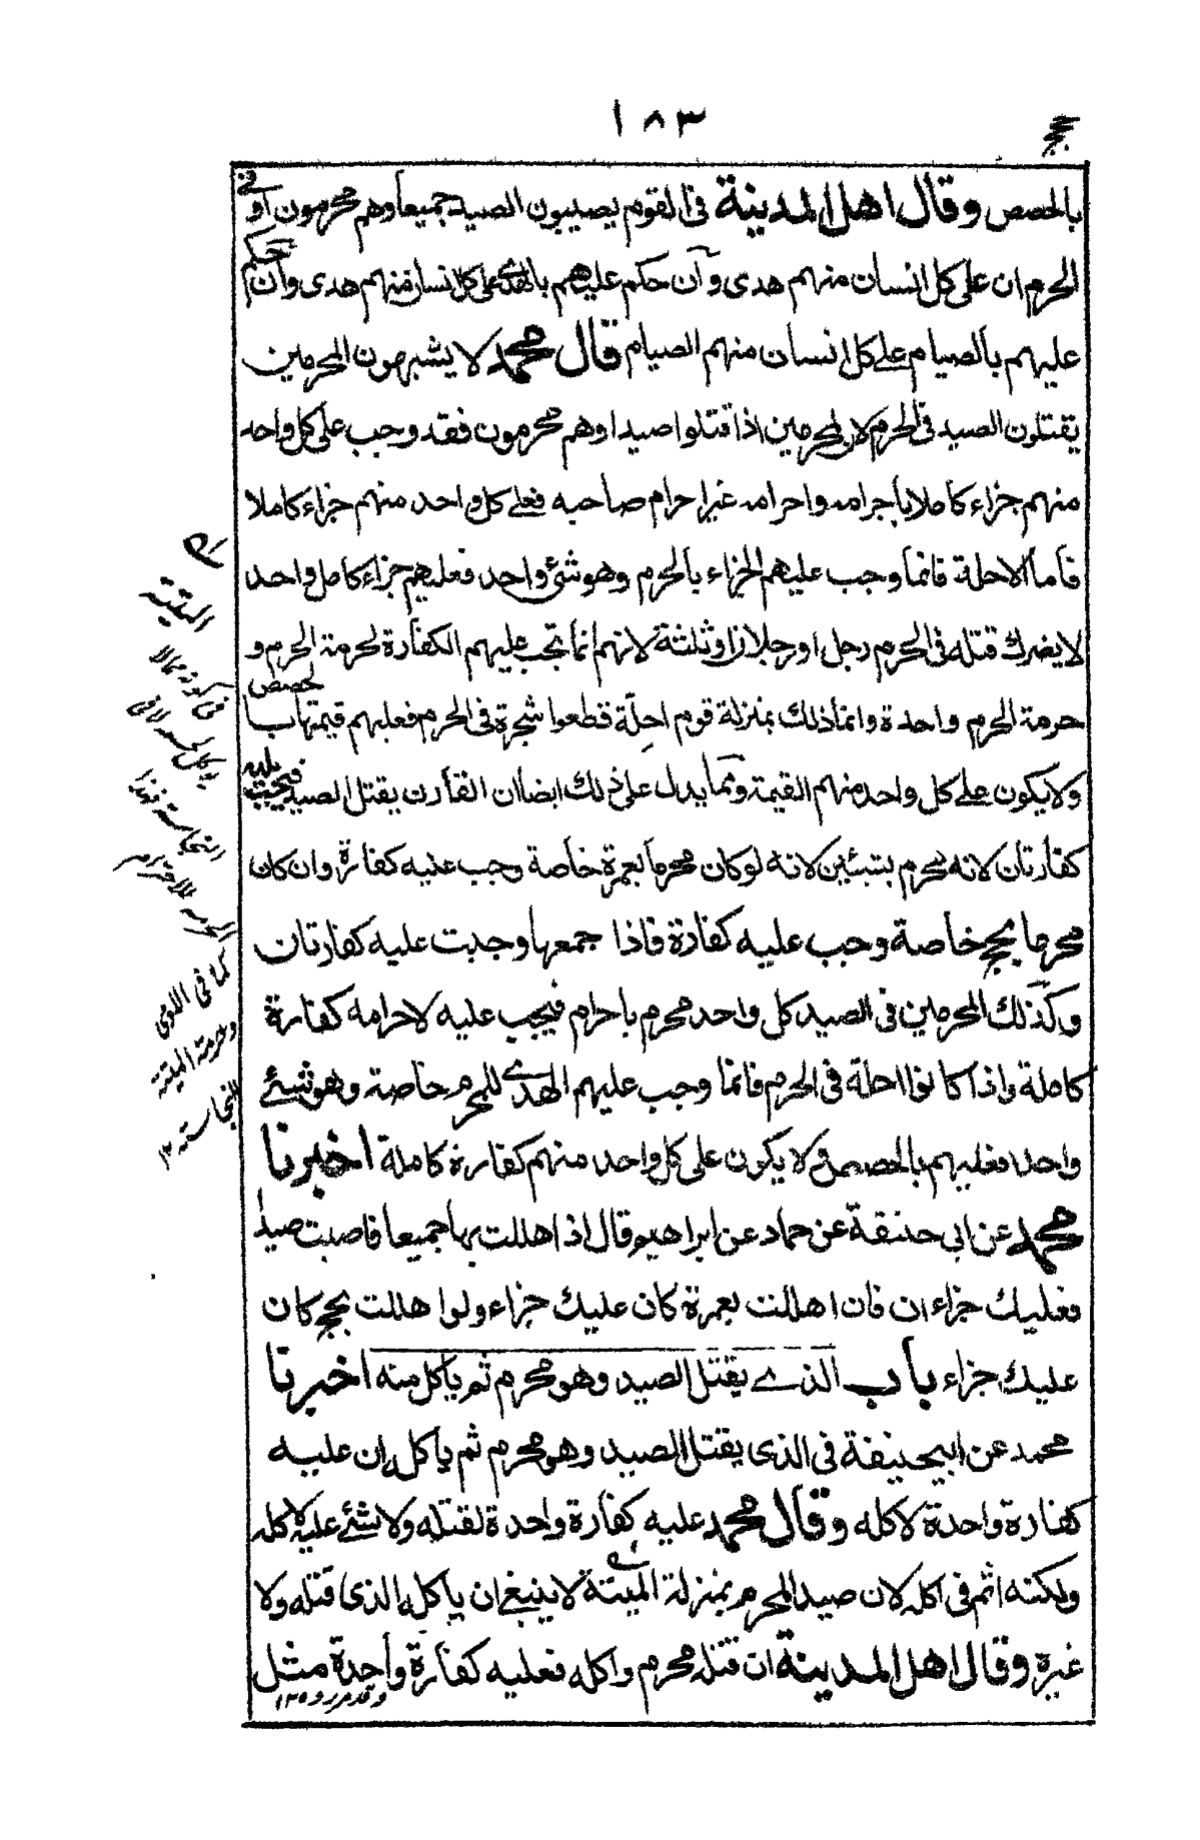 ١٨٣
حج
بالحصص وقال اهل المدينة فى القوم يصيبون الصيد جميعا وهم محرمون او فى
الحرم ان على كل انسان منهم هدى وان حكم عليهم بالهدى على كل نسان منهم هدى وان حكم
عليهم بالصيام على كل انسان منهم الصيام قال محمد لا يشبه ون المحرمين
يقتلون الصيد فى الحرم لان المحرمين اذا قتلوا صيدا وهم محرمون فقد وجب على كل واحد
منهم جزاء كاملا باجرامه واحرامه غير احرام صاحبه فعلى كل واحد منهم جزاء كاملا
فاما الاحلة فانما وجب عليهم الجزاء بالحرم وهو شئ واحد فعليهم جزاء كامل واحد
لا يضرك قتله فى الحرم رجل او رجلان او ثلثة لانهم انما تجب عليهم الكفارة لحرمة الحرم و
حرمة الحرم واحدة وانما ذلك بمنزلة قوم احلة قطعوا شجرة فى الحرم فعليهم قيمتها بالحصص
ولا يكون على كل واحد منهم القيمة ومما يدل على ذلك ايضا ان القارن يقتل الصيد فيجب عليه
كفارتان لانه محرم بشيئين لانه لو كان محرما بعمرة خاصة وجب عليه كفارة وان كان
محرما بحج خاصة وجب عليه كفارة فاذا جمعها وجبت عليه كفارتان
وكذلك المحرمين فى الصيد كل واحد محرم باحرام فيجب عليه لاحرامه كفارة
كاملة واذا كانوا احلة فى الحرم فانما وجب عليهم الهدى للحرم خاصة وهو شئے
واحد فعليهم بالحصص ولا يكون على كل واحد منهم كفارة كاملة اخبرنا
محمد عن ابى حنيفة عن حماد عن ابراهيم قال اذا هللت بها جميعا فاصبت صيدا
فعليك جزاء ان فان اهللت بعمرة كان عليك جزاء ولو اهللت بحج كان
عليك جزاء باب الذے يقتل الصيد وهو محرم ثم ياكل منه اخبرنا
محمد عن ابيحنيفة فى الذى يقتل الصيد وهو محرم ثم ياكل ان عليه
كفارة واحدة لاكله وقال محمد عليه كفارة واحدة لقتله ولا شئے عليه لاكله
ولكنه اثم فى اكله لان صيد المحرم بمنزلة الميتة لا ينبغ ان ياكل الذى قتله ولا
غيره وقال اهل المدينة ان قتله محرم واكله فعليه كفارة واحدة مثل
كما فى
وحرمة الميتة
للنجاسة ١٢